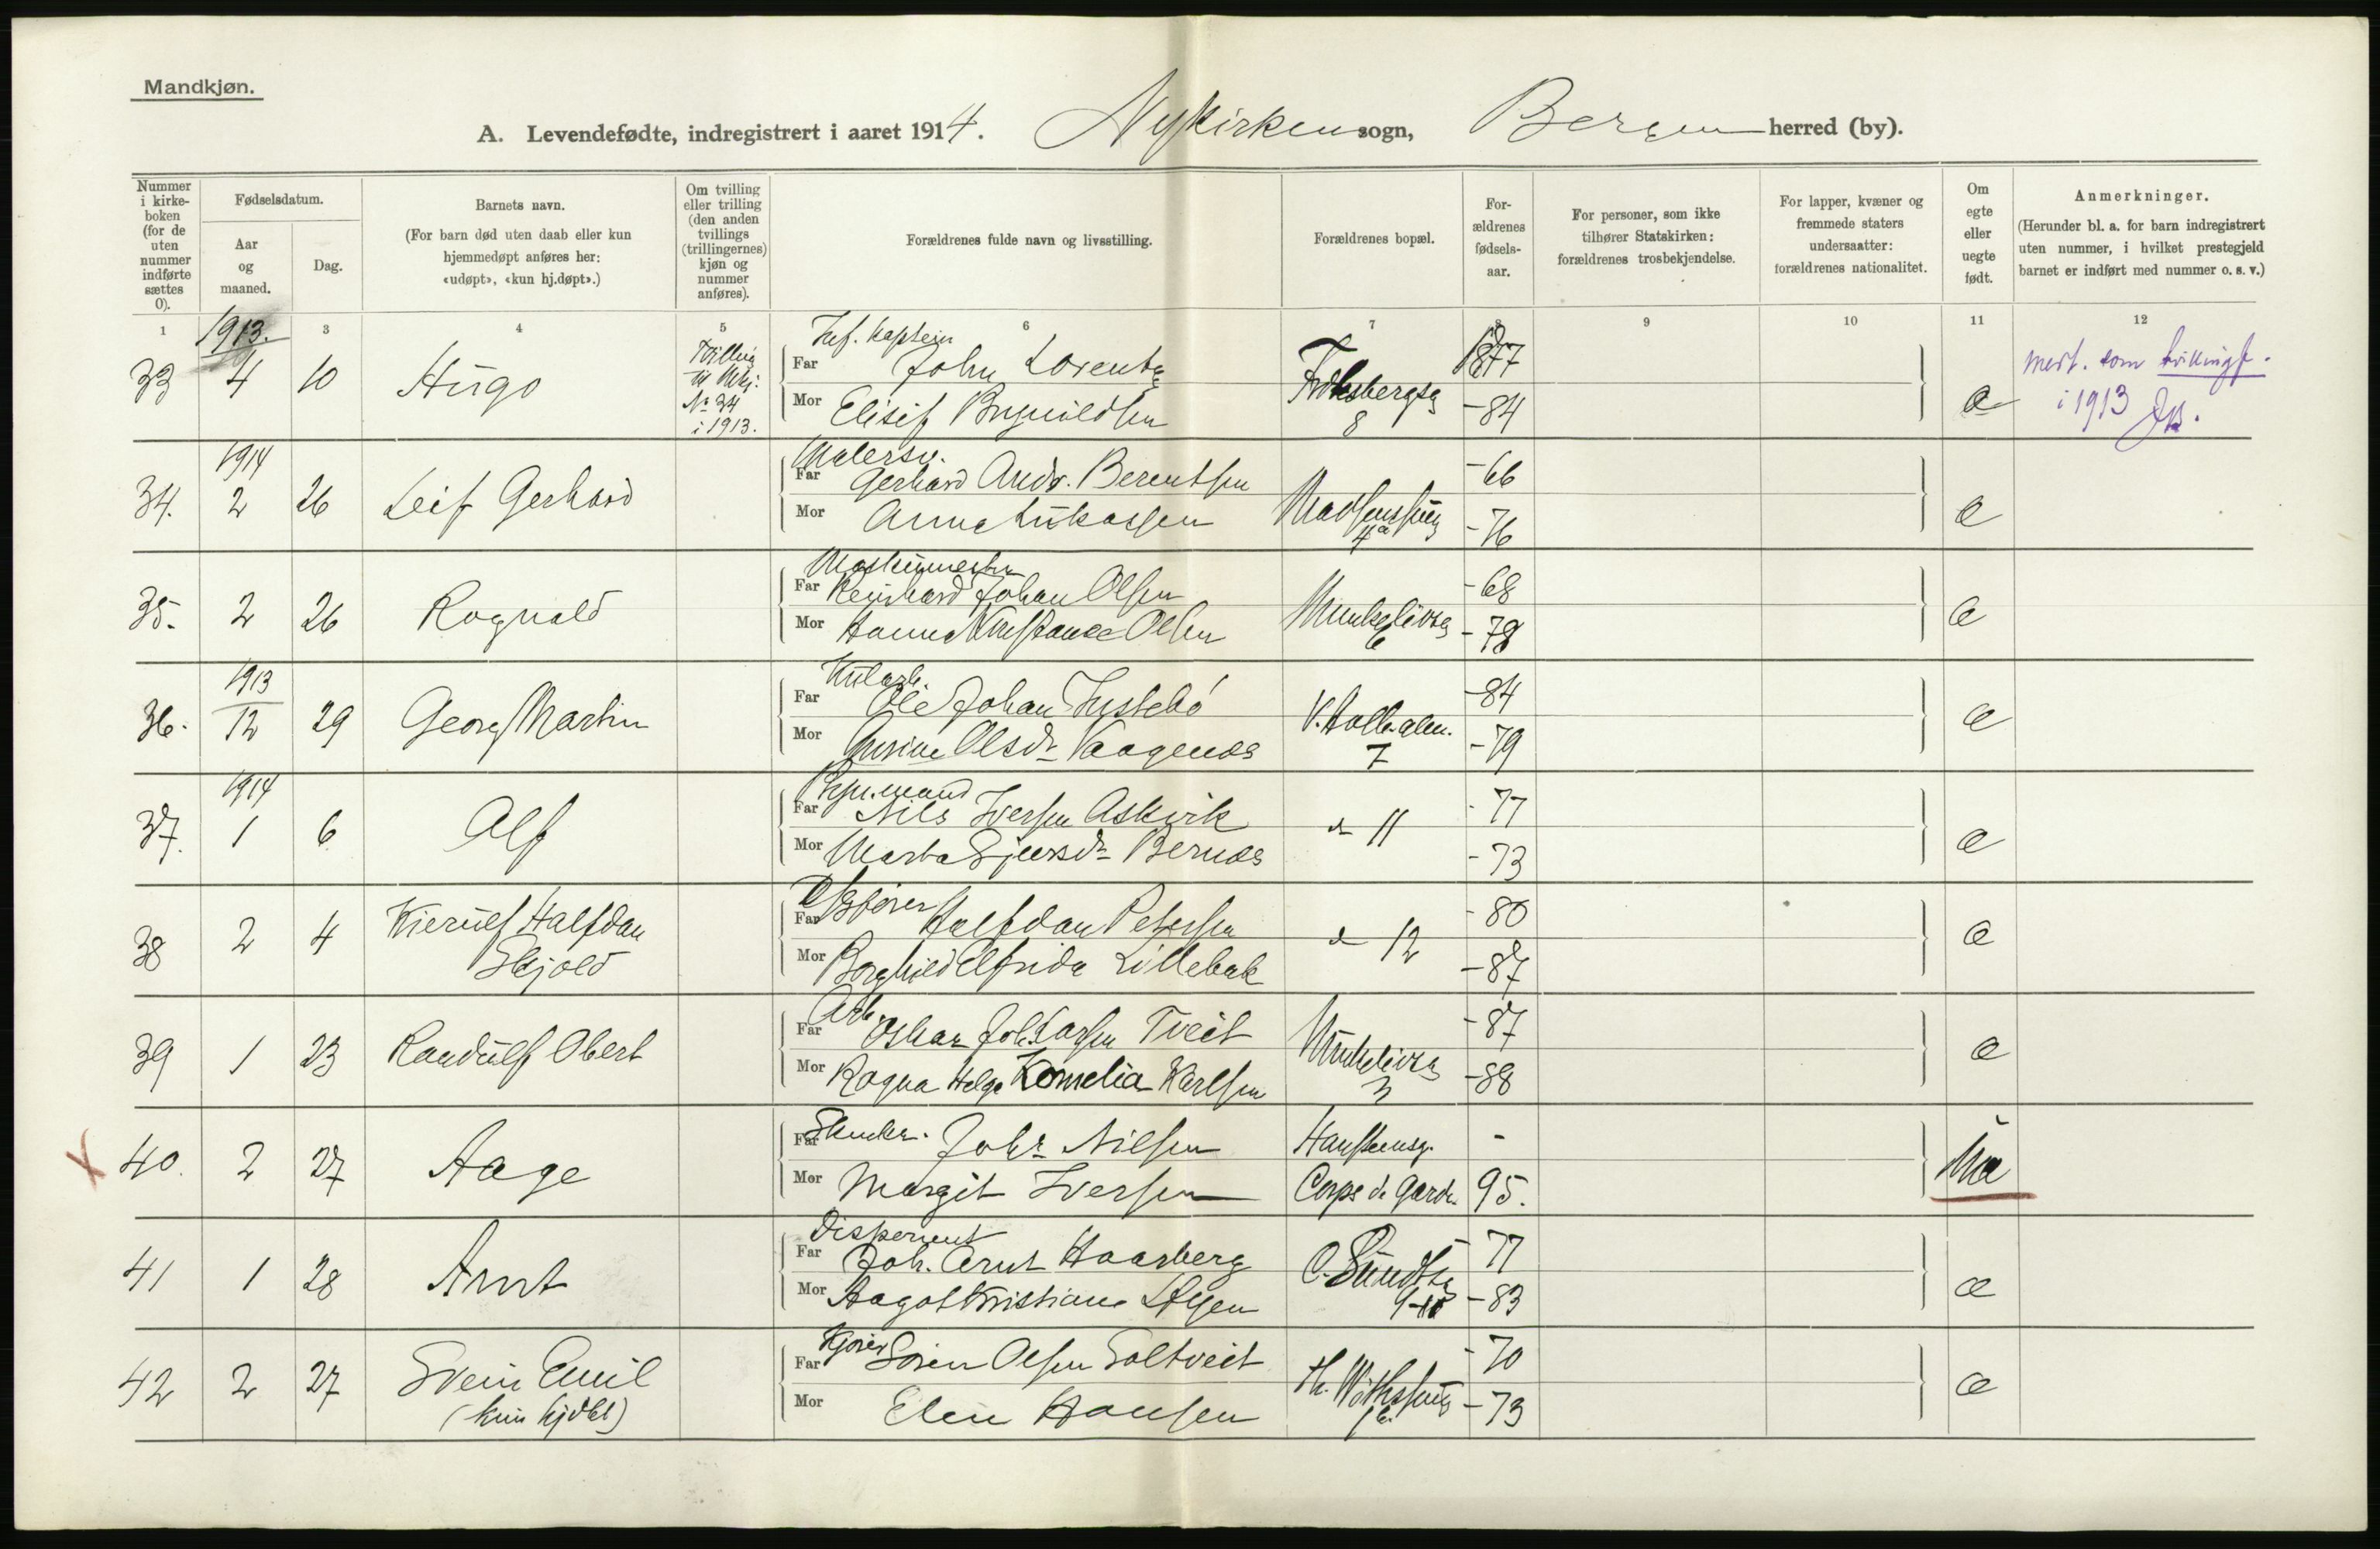 Mandkjøn.
A. Levendefødte, indregistrert i aaret 1914. Nykirken sogn, Bergen herred (by).
Nummer i kirke-boken (for de uten nummer indførte sættes 0).
Fødselsdatum.
Aar og maaned.
Dag.
Barnets navn.
(For barn død uten daab eller kun hjemmedøpt anføres her: «udøpt», «kun hj.døpt».)
Om tvilling eller trilling (den anden tvillings (trillingernes) kjøn og nummer anføres).
Forældrenes fulde navn og livsstilling.
Forældrenes bopæl.
For-ældrenes fødsels-aar.
For personer, som ikke tilhører Statskirken: forældrenes trosbekjendelse.
For lapper, kvæner og fremmede staters undersaatter: forældrenes nationalitet.
Om egte eller uegte født.
Anmerkninger.
(Herunder bl. a. for barn indregistrert uten nummer, i hvilket prestegjeld barnet er indført med nummer o. s. v.)
1 3 4 5 6 7 8 9 10 11 12
1913.
33 4 10 Hugo
Tvilling til
No 34
i 1913.
Kaptein
Far John Lorentz
Mor Elisif
8
1877
-84
e
som tvillingf.
i 1913
1914
34. 2 26 Leif Gerhard
Malersv.
Far Gerhard Andr. Berentsen
Mor Anna Lukassen
4a
-66
-76
e
35. 2 26 Ragnald
Maskinmester
Far Reinhard Johan Olsen
Mor Hanna Konstance Olsen
Munkelivsg
6
-68
-78
e
1913
36. 12 29 Georg Martin
Kularb.
Far Ole Johan Tystebö
Mor Olsdr Vaagenæs
V. Holb.alm.
7
-84
-79
e
1914
37. 1 6 Alf
Far Nils Iversen Askvik
Mor Marta Bernæs
do 11
-77
-73
e
38 2 4 Kierulf Halfdan
Skjold
Far Halfdan Petersen
Mor Borghild Elfrida Lillebak
do 12
-80
-87
e
39 1 23 Randulf Obert
Arb.
Far Oskar Joh. Larsen Tveit
Mor Ragna Helga Kornelia Karlsen
Munkelivsg
3
-87
-88
e
X 40. 2 27 Aage
Far Johs Nilsen
Mor Margit Iversen
Hansteensg.
Corps de Garde.
-
95.
ue
41 1 28 Arnt
Disponent
Far Joh. Arnt Haarberg
Mor Aagot Kristiane
C. Sundtsg
-77
-83
e
42 2 27 Svein Emil
(kun hjdbt)
Kjörer
Far Sören Olsen Soltveit
Mor Elen Hansen
-70
-73
e